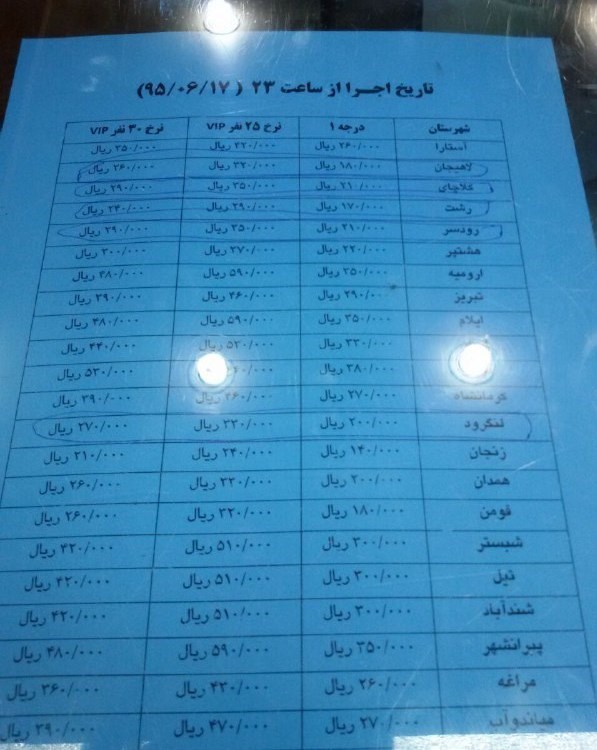 تاریخ اجـرا از ساعت ۲۳ ( ۹۵/۰۶/۱۷)
شهرستان درجه ۱ نرخ ۲۵ نفر VIP نرخ ۳۰ نفر VIP
آستارا ۲۶۰/۰۰۰ ریال ۴۲۰/۰۰۰ ریال ۳۵۰/۰۰۰ ریال
لاهیجان ۱۸۰/۰۰۰ ریال ۳۲۰/۰۰۰ ریال ۲۶۰/۰۰۰ ریال
کلاچای ۲۱۰/۰۰۰ ریال ۳۵۰/۰۰۰ ریال ۲۹۰/۰۰۰ ریال
رشت ۱۷۰/۰۰۰ ریال ۲۹۰/۰۰۰ ریال ۲۴۰/۰۰۰ ریال
رودسر ۲۱۰/۰۰۰ ریال ۳۵۰/۰۰۰ ریال ۲۹۰/۰۰۰ ریال
هشتپر ۲۲۰/۰۰۰ ریال ۳۷۰/۰۰۰ ریال ۳۰۰/۰۰۰ ریال
ارومیه ۳۵۰/۰۰۰ ریال ۵۹۰/۰۰۰ ریال ۴۸۰/۰۰۰ ریال
تبریز ۲۹۰/۰۰۰ ریال ۴۶۰/۰۰۰ ریال ۳۹۰/۰۰۰ ریال
ایلام ۳۵۰/۰۰۰ ریال ۵۹۰/۰۰۰ ریال ۴۸۰/۰۰۰ ریال
۳۳۰/۰۰۰ ریال ۵۲۰/۰۰۰ ریال ۴۴۰/۰۰۰ ریال
۳۸۰/۰۰۰ ریال ریال ۵۳۰/۰۰۰ ریال
کرمانشاه ۲۷۰/۰۰۰ ریال ۴۶۰/۰۰۰ ریال ۳۹۰/۰۰۰ ریال
لنگرود ۲۰۰/۰۰۰ ریال ۳۲۰/۰۰۰ ریال ۲۷۰/۰۰۰ ریال
زنجان ۱۴۰/۰۰۰ ریال ۲۴۰/۰۰۰ ریال ۲۱۰/۰۰۰ ریال
همدان ۲۰۰/۰۰۰ ریال ۳۲۰/۰۰۰ ریال ۲۶۰/۰۰۰ ریال
فومن ۱۸۰/۰۰۰ ریال ۳۲۰/۰۰۰ ریال ۲۶۰/۰۰۰ ریال
شبستر ۳۰۰/۰۰۰ ریال ۵۱۰/۰۰۰ ریال ۴۲۰/۰۰۰ ریال
تیل ۳۰۰/۰۰۰ ریال ۵۱۰/۰۰۰ ریال ۴۲۰/۰۰۰ ریال
شندآباد ۳۰۰/۰۰۰ ریال ۵۱۰/۰۰۰ ریال ۴۲۰/۰۰۰ ریال
پیرانشهر ۳۵۰/۰۰۰ ریال ۵۹۰/۰۰۰ ریال ۴۸۰/۰۰۰ ریال
مراغه ۲۶۰/۰۰۰ ریال ۴۳۰/۰۰۰ ریال ۳۶۰/۰۰۰ ریال
میاندوآب ۲۷۰/۰۰۰ ریال ۴۷۰/۰۰۰ ریال ۳۹۰/۰۰۰ ریال